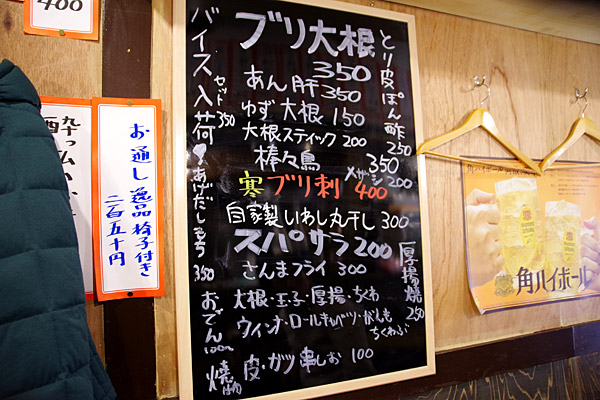 400
酔っ
お通し逸品椅子付き
二百五十円
バイス入荷
セット350
あげだしもち
350
ブリ大根
350
あん肝 350
ゆず大根 150
大根スティック 200
棒々鳥 350
メザシ 200
寒ブリ刺 400
自家製いわし丸干し 300
スパサラ 200
さんまフライ 300
とり皮ぽん酢
250
厚揚焼
250
おでん
大根・玉子・厚揚・ちくわ
ウィンナ・ロールキャベツ・がんも
ちくわぶ
焼 皮・ガツ串しお 100
角ハイボール